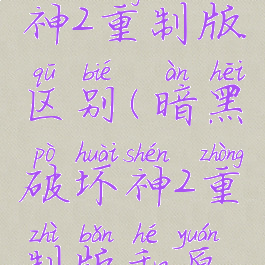 神2重制版
qū bié àn hēi
区别(暗黑
pò huài shén zhòng
破坏神2重
zhì bǎn hé yuán
制版和原